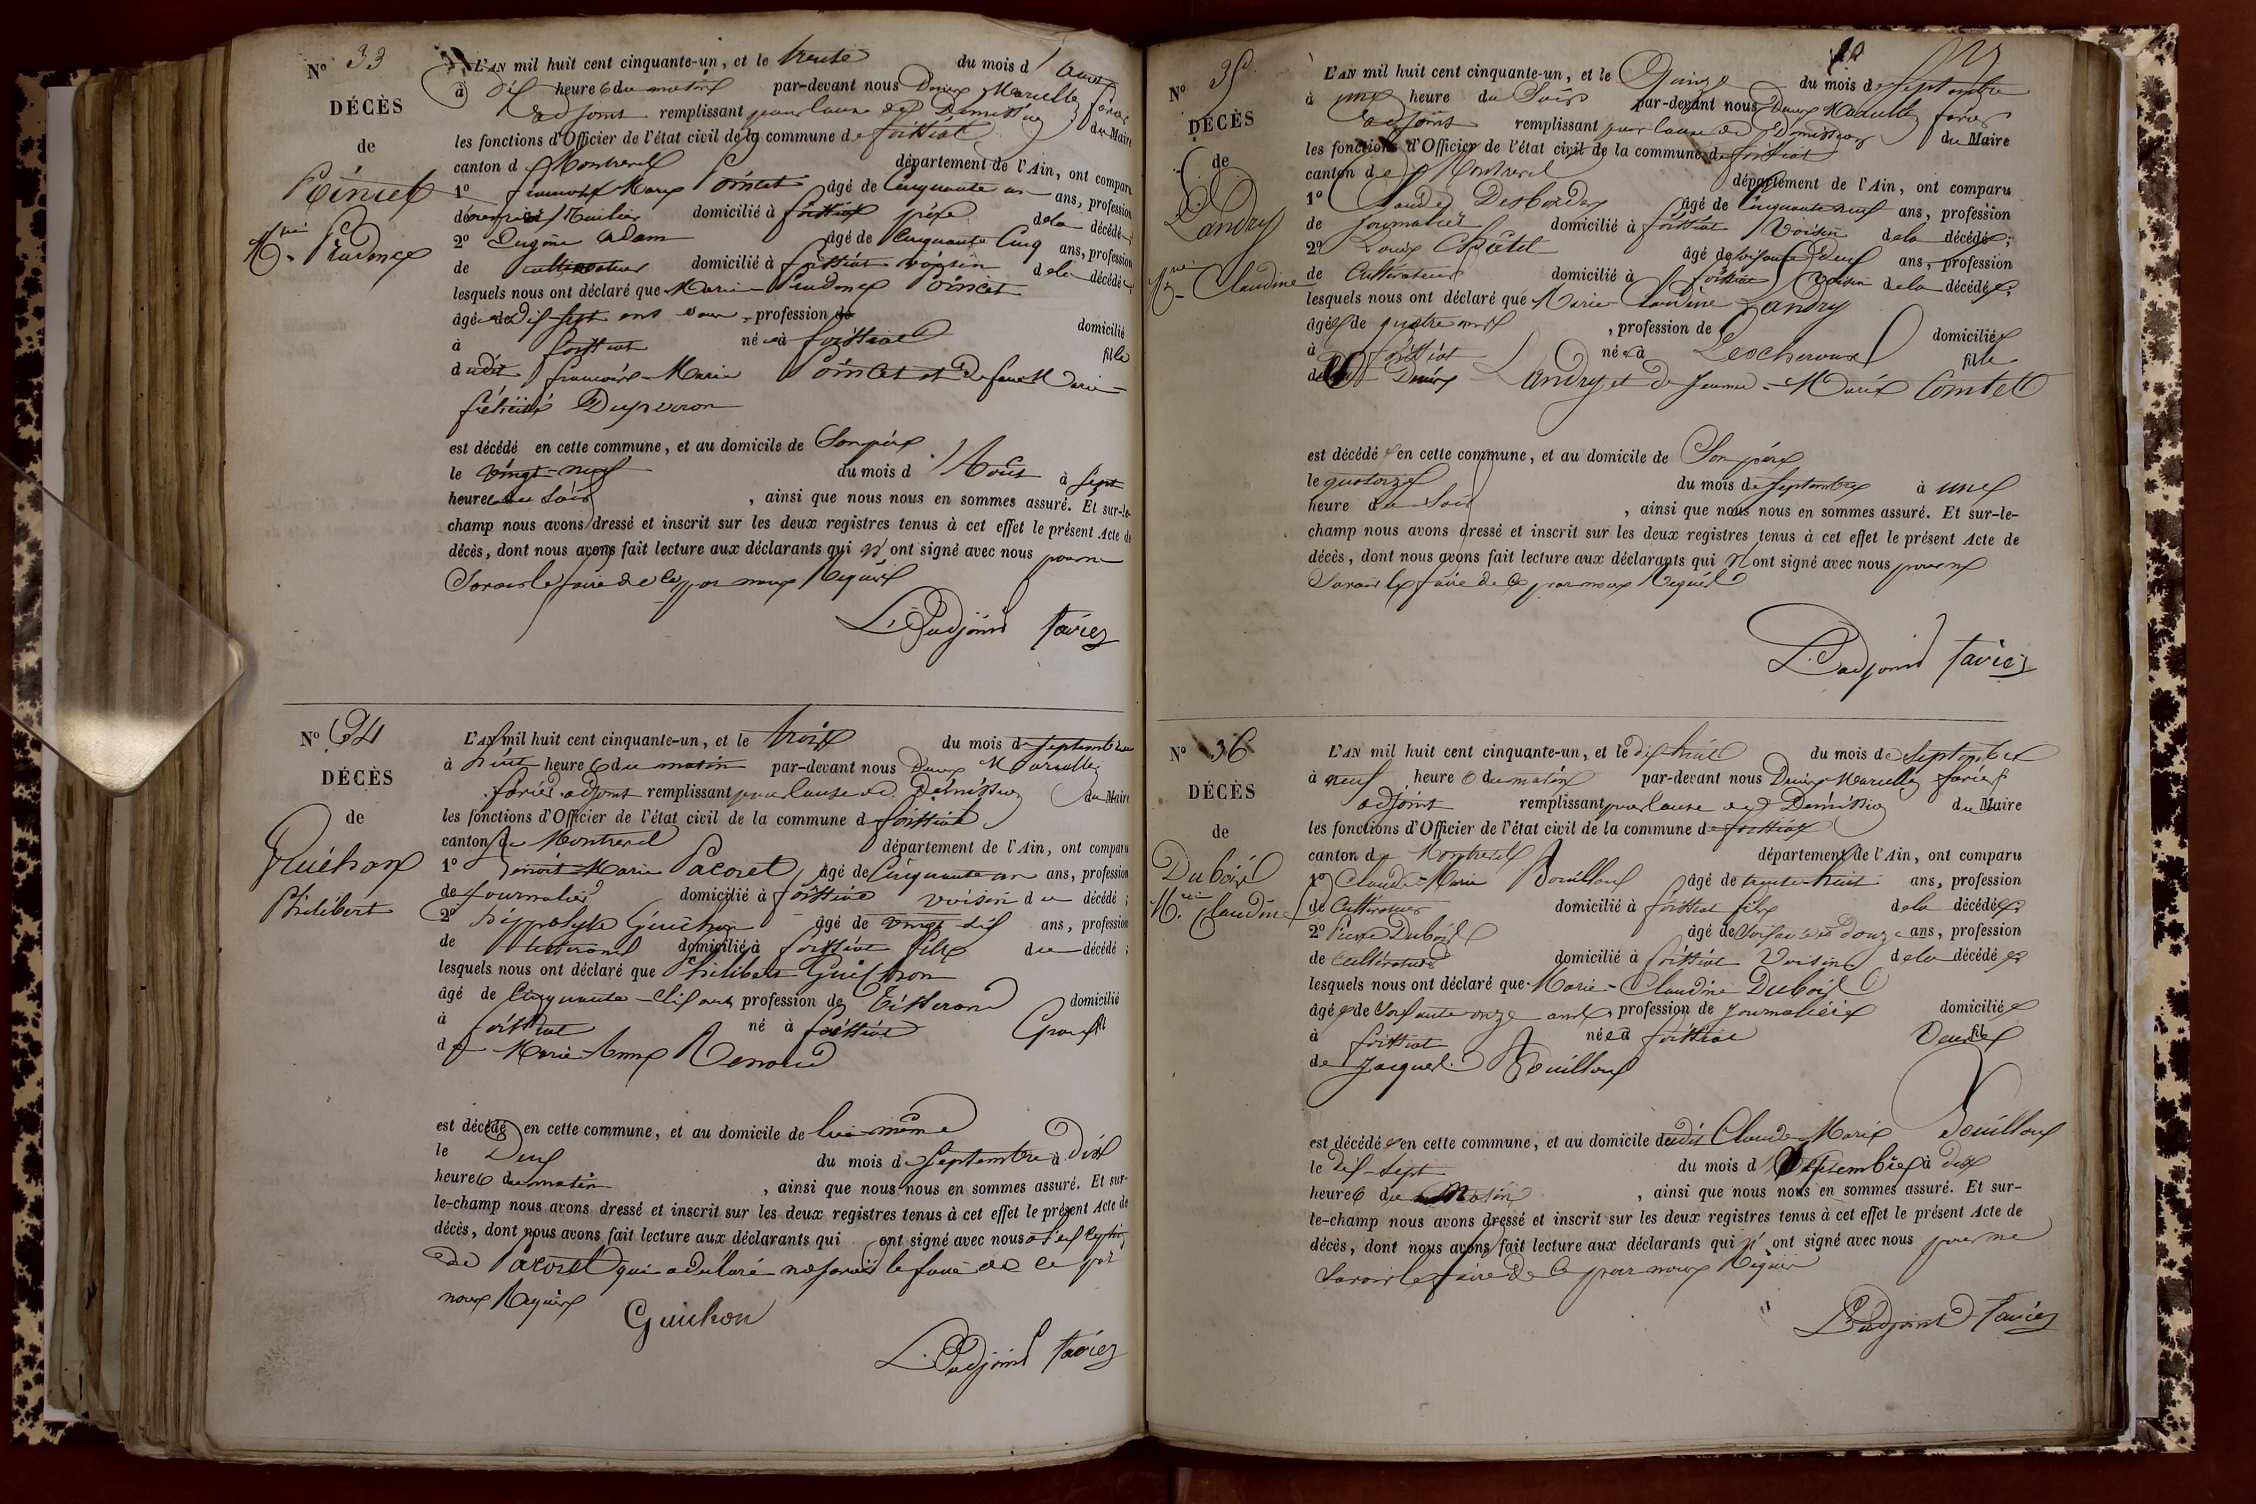 N° 33
DÉCÈS
de
Poincet
M.rie Prudence
L'AN mil huit cent cinquante-un, et le trente du mois d'Août
à dix heure du matin par-devant nous Denis Marcelle favier
adjoint remplissant pour cause de Démission du Maire
les fonctions d'Officier de l'état civil de la commune de foissiat
canton de Montrevel département de l'Ain, ont comparu
1° francois Marie Poincet âgé de Cinquante un ans, profession
de domicilié à foissiat père de la décédée;
2° Eugène Adam âgé de Cinquante Cinq ans, profession
de cultivateur domicilié à foissiat voisin de la décédée;
lesquels nous ont déclaré que Marie-Prudence Poincet
âgée de Dix-Sept ans profession de
domicilié
à foissiat née à foissiat fille
dudit francois-Marie Poincet et de feue Marie-
félicité Duperron
est décédé en cette commune, et au domicile de Son père
le vingt-neuf du mois d'Août à Sept
heure du Soir, ainsi que nous nous en sommes assuré. Et sur-le-
champ nous avons dressé et inscrit sur les deux registres tenus à cet effet le présent Acte de
décès, dont nous avons fait lecture aux déclarants qui n'ont signé avec nous pour ne
Savoir le faire de ce par nous Requis
L'adjoint favier
N° 34
DÉCÈS
de
Guichon
Philibert
L'AN mil huit cent cinquante-un, et le trois du mois de Septembre
à huit heure du matin par-devant nous Denis Marcelle
favier adjoint remplissant pour cause de Démission du Maire
les fonctions d'Officier de l'état civil de la commune de foissiat
canton de Montrevel département de l'Ain, ont comparu
1° Benoit Marie Pacoret âgé de Cinquante un ans, profession
de journalier domicilié à foissiat voisin du décédé;
2° hippolyte Guichon âgé de vingt-dix ans, profession
de tisserand domicilié à foissiat fils du décédé;
lesquels nous ont déclaré que Philibert Guichon
âgé de Cinquante-dix ans profession de Tisserand domicilié
à foissiat né à foissiat Epoux fil
de Marie-Anne Renoud
est décédé en cette commune, et au domicile de lui même
le Deux du mois de Septembre à Dix
heure du matin, ainsi que nous nous en sommes assuré. Et sur-
le-champ nous avons dressé et inscrit sur les deux registres tenus à cet effet le présent Acte de
décès, dont nous avons fait lecture aux déclarants qui ont signé avec nous à l'exception
de Pacoret qui a déclaré ne savoir le faire de ce par
nous Requis
Guichon
L'adjoint favier
20
N° 35
DÉCÈS
de
Landry
M.rie Claudine
L'AN mil huit cent cinquante-un, et le Quinze du mois de Septembre
à une heure du Soir par-devant nous Denis Marcelle favier
adjoint remplissant pour cause de Démission du Maire
les fonctions d'Officier de l'état civil de la commune de foissiat
canton de Montrevel département de l'Ain, ont comparu
1° Claude Desbordes âgé de Cinquante neuf ans, profession
de journalier domicilié à foissiat Voisin de la décédée;
2° Louis Chatel âgé de soixante Deux ans, profession
de Cultivateur domicilié à foissiat Voisin de la décédée;
lesquels nous ont déclaré que Marie-Claudine Landry
âgée de quatre mois, profession de domiciliée
à foissiat née à Lescheroux fille
de Denis Landry et de Jeanne-Marie Comtet
est décédée en cette commune, et au domicile de Son père
le quatorze du mois de Septembre à une
heure du Soir, ainsi que nous nous en sommes assuré. Et sur-le-
champ nous avons dressé et inscrit sur les deux registres tenus à cet effet le présent Acte de
décès, dont nous avons fait lecture aux déclarants qui n'ont signé avec nous pour ne
Savoir le faire de ce par nous Requis
L'adjoint favier
N° 36
DÉCÈS
de
Dubois
M.rie Claudine
L'AN mil huit cent cinquante-un, et le dix huit du mois de Septembre
à neuf heure du matin par-devant nous Denis Marcelle favier
adjoint remplissant pour cause de Démission du Maire
les fonctions d'Officier de l'état civil de la commune de foissiat
canton de Montrevel département de l'Ain, ont comparu
1° Claude-Marie Bouilloux âgé de trente-huit ans, profession
de Cultivateur domicilié à foissiat fils de la décédée;
2° Pierre Dubois âgé de Soixante douze ans, profession
de Cultivateur domicilié à foissiat Voisin de la décédée
lesquels nous ont déclaré que Marie-Claudine Dubois
âgée de Soixante-onze ans, profession de journalière domiciliée
à foissiat née à foissiat Veuve fil
de Jacques Bouilloux
est décédée en cette commune, et au domicile dudit Claude-Marie Bouilloux
le dix-sept du mois de Septembre à dix
heure du Matin, ainsi que nous nous en sommes assuré. Et sur-
le-champ nous avons dressé et inscrit sur les deux registres tenus à cet effet le présent Acte de
décès, dont nous avons fait lecture aux déclarants qui n'ont signé avec nous pour ne
Savoir le faire de ce par nous Requis
L'adjoint favier